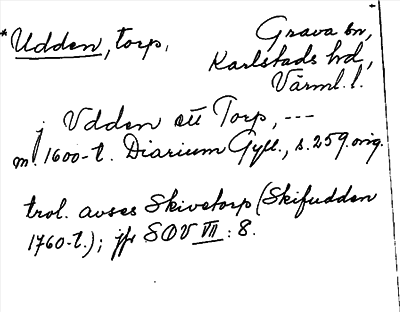 *Udden, torp,
Grava sn,
Karlstads hd,
Värml. l.
j Vdden ett Torp, ---
m. 1600-t. Diarium Gyll., s. 259. orig.
trol. avses Skivetorp (Skifudden
1760-t.); jfr SOV VII : 8.